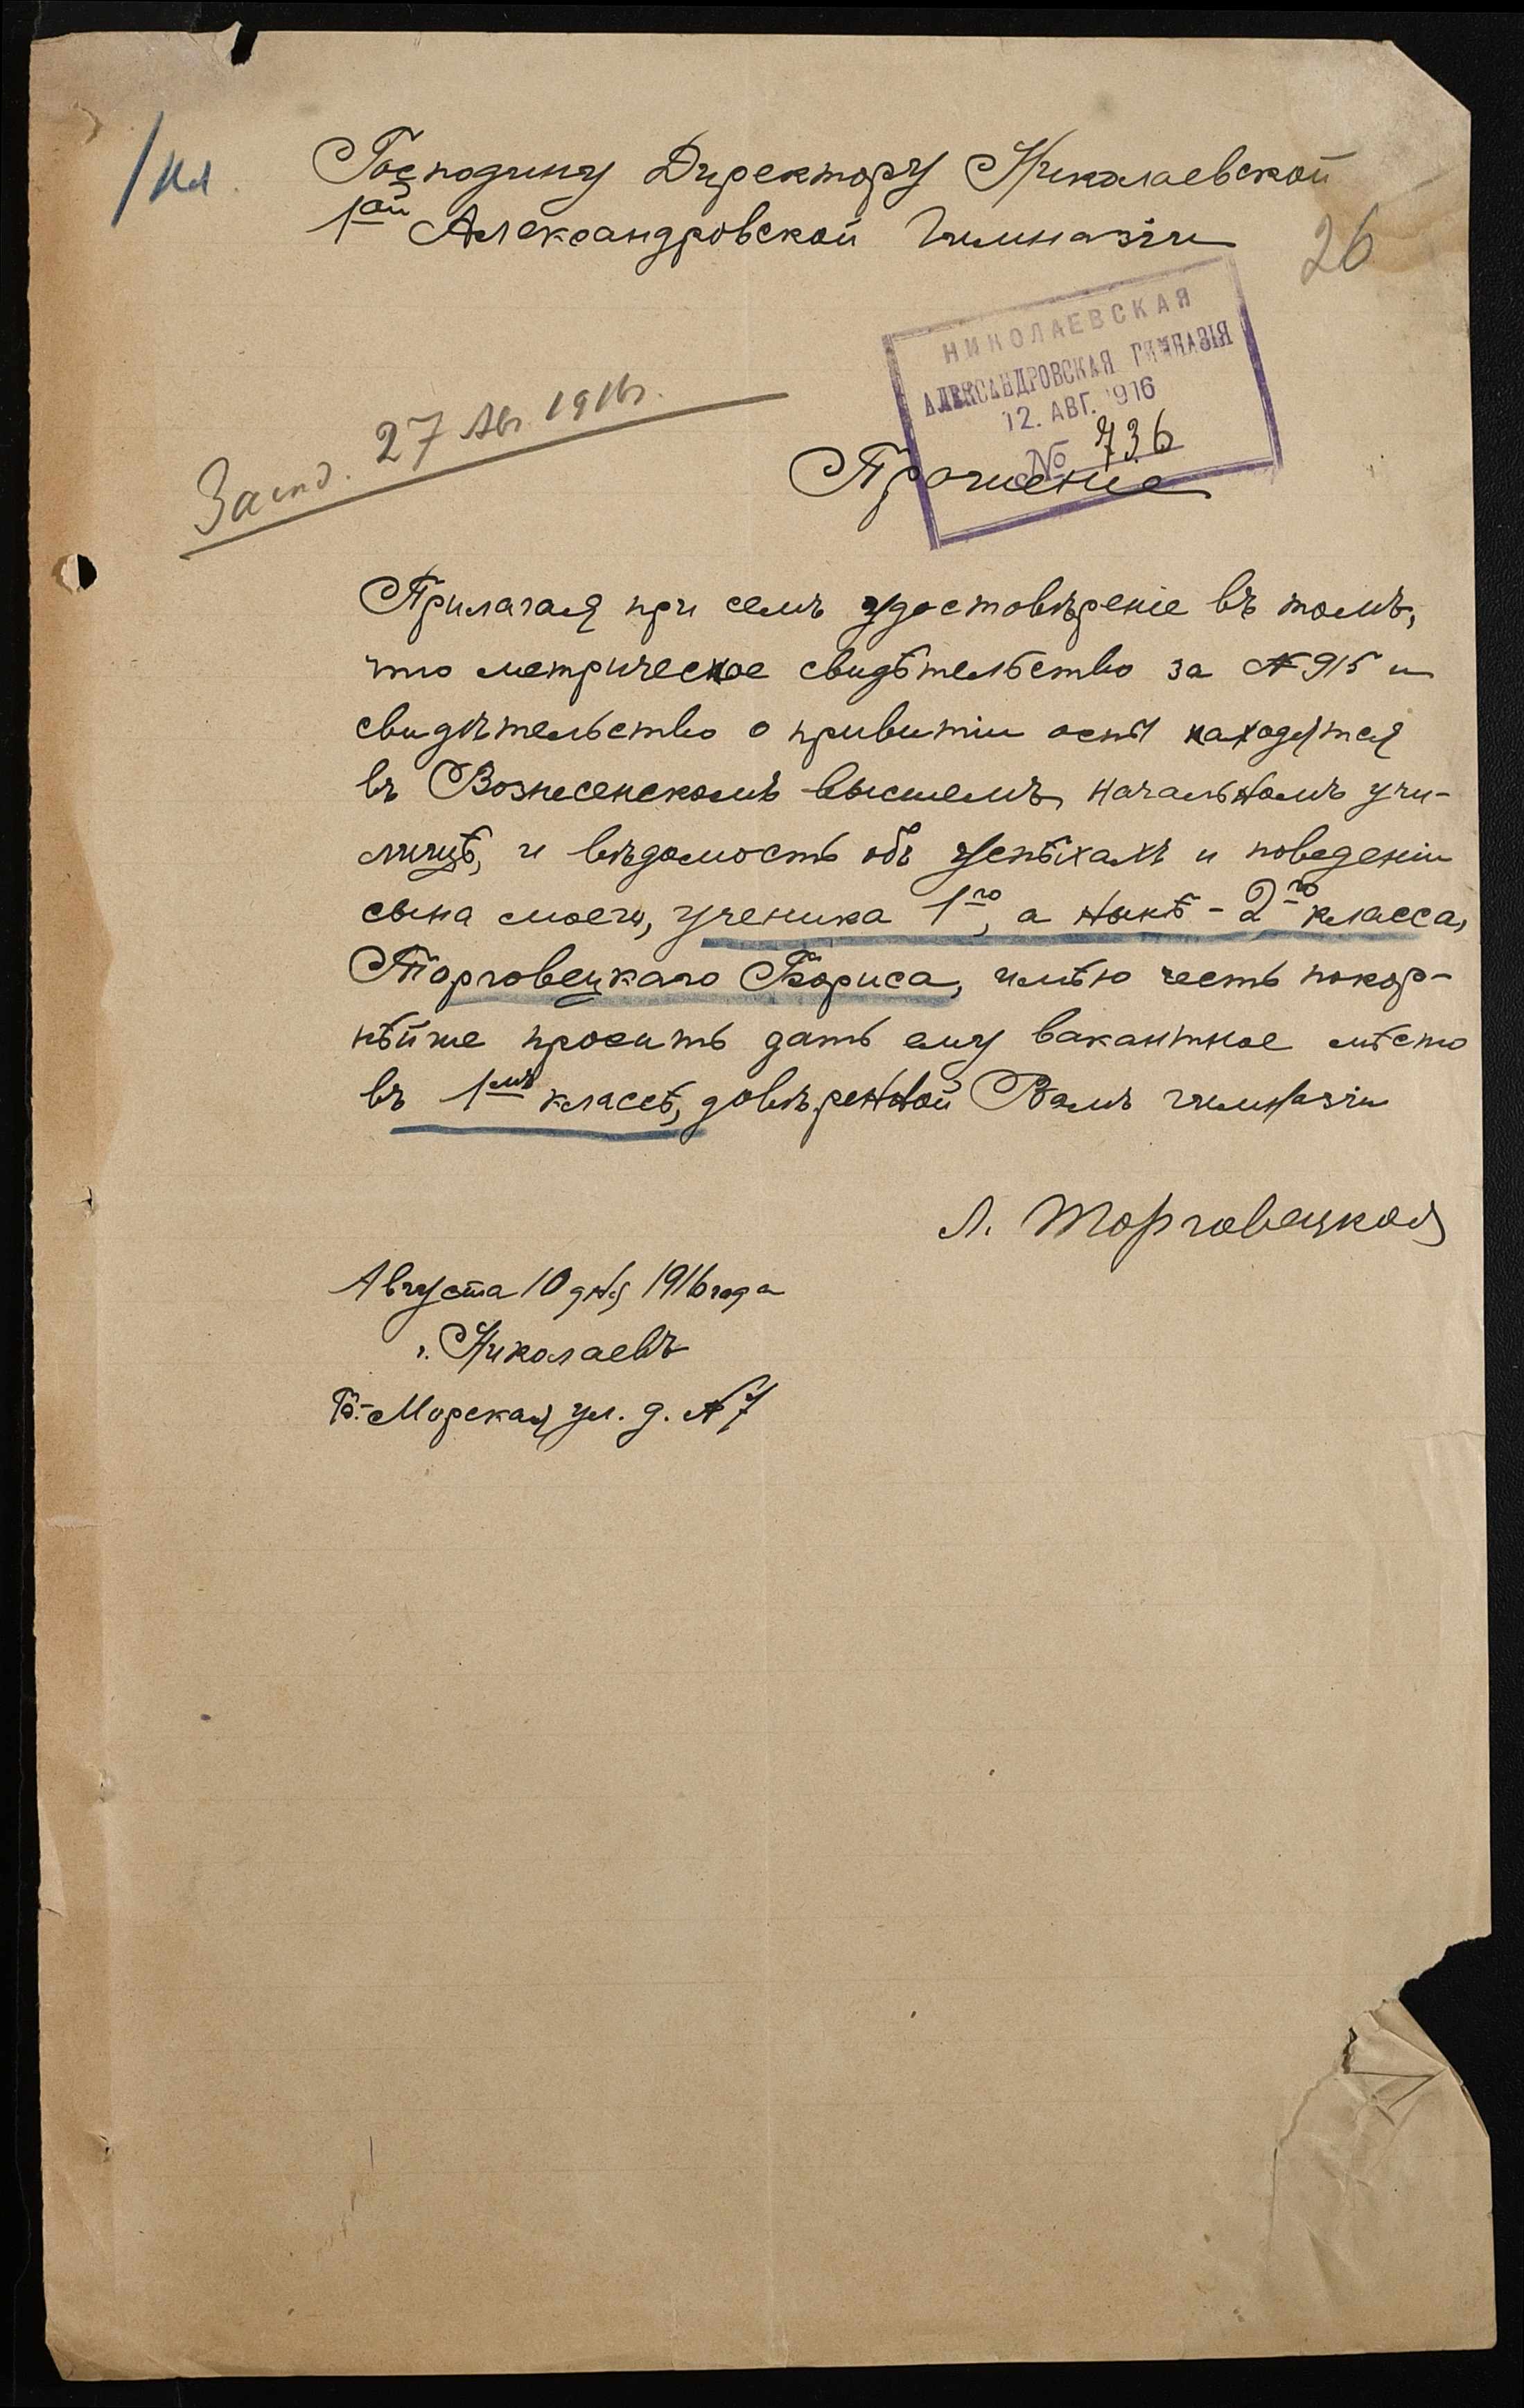 I кл.
Господину Директору Николаевской
1ой Александровской Гимназіи
26
НИКОЛАЕВСКАЯ
АЛЕКСАНДРОВСКАЯ ГИМНАЗІЯ
12. АВГ. 1916
№ 736
Засѣд. 27 Авг. 1916г.
Прошеніе
Прилагая при семъ удостовѣреніе въ томъ,
что метрическое свидѣтельство за № 915 и
свидѣтельство о привитіи оспы находятся
въ Вознесенскомъ высшемъ начальномъ учи-
лищѣ, и вѣдомость объ успѣхахъ и поведеніи
сына моего, ученика 1го, а нынѣ - 2го класса,
Торговецкаго Бориса, имѣю честь покор-
нѣйше просить дать ему вакантное мѣсто
въ 1мъ классѣ, довѣренной Вамъ гимназіи
Л. Торговецкая
Августа 10 дня 1916 года
г. Николаевъ
Б.-Морская ул. д. № 7